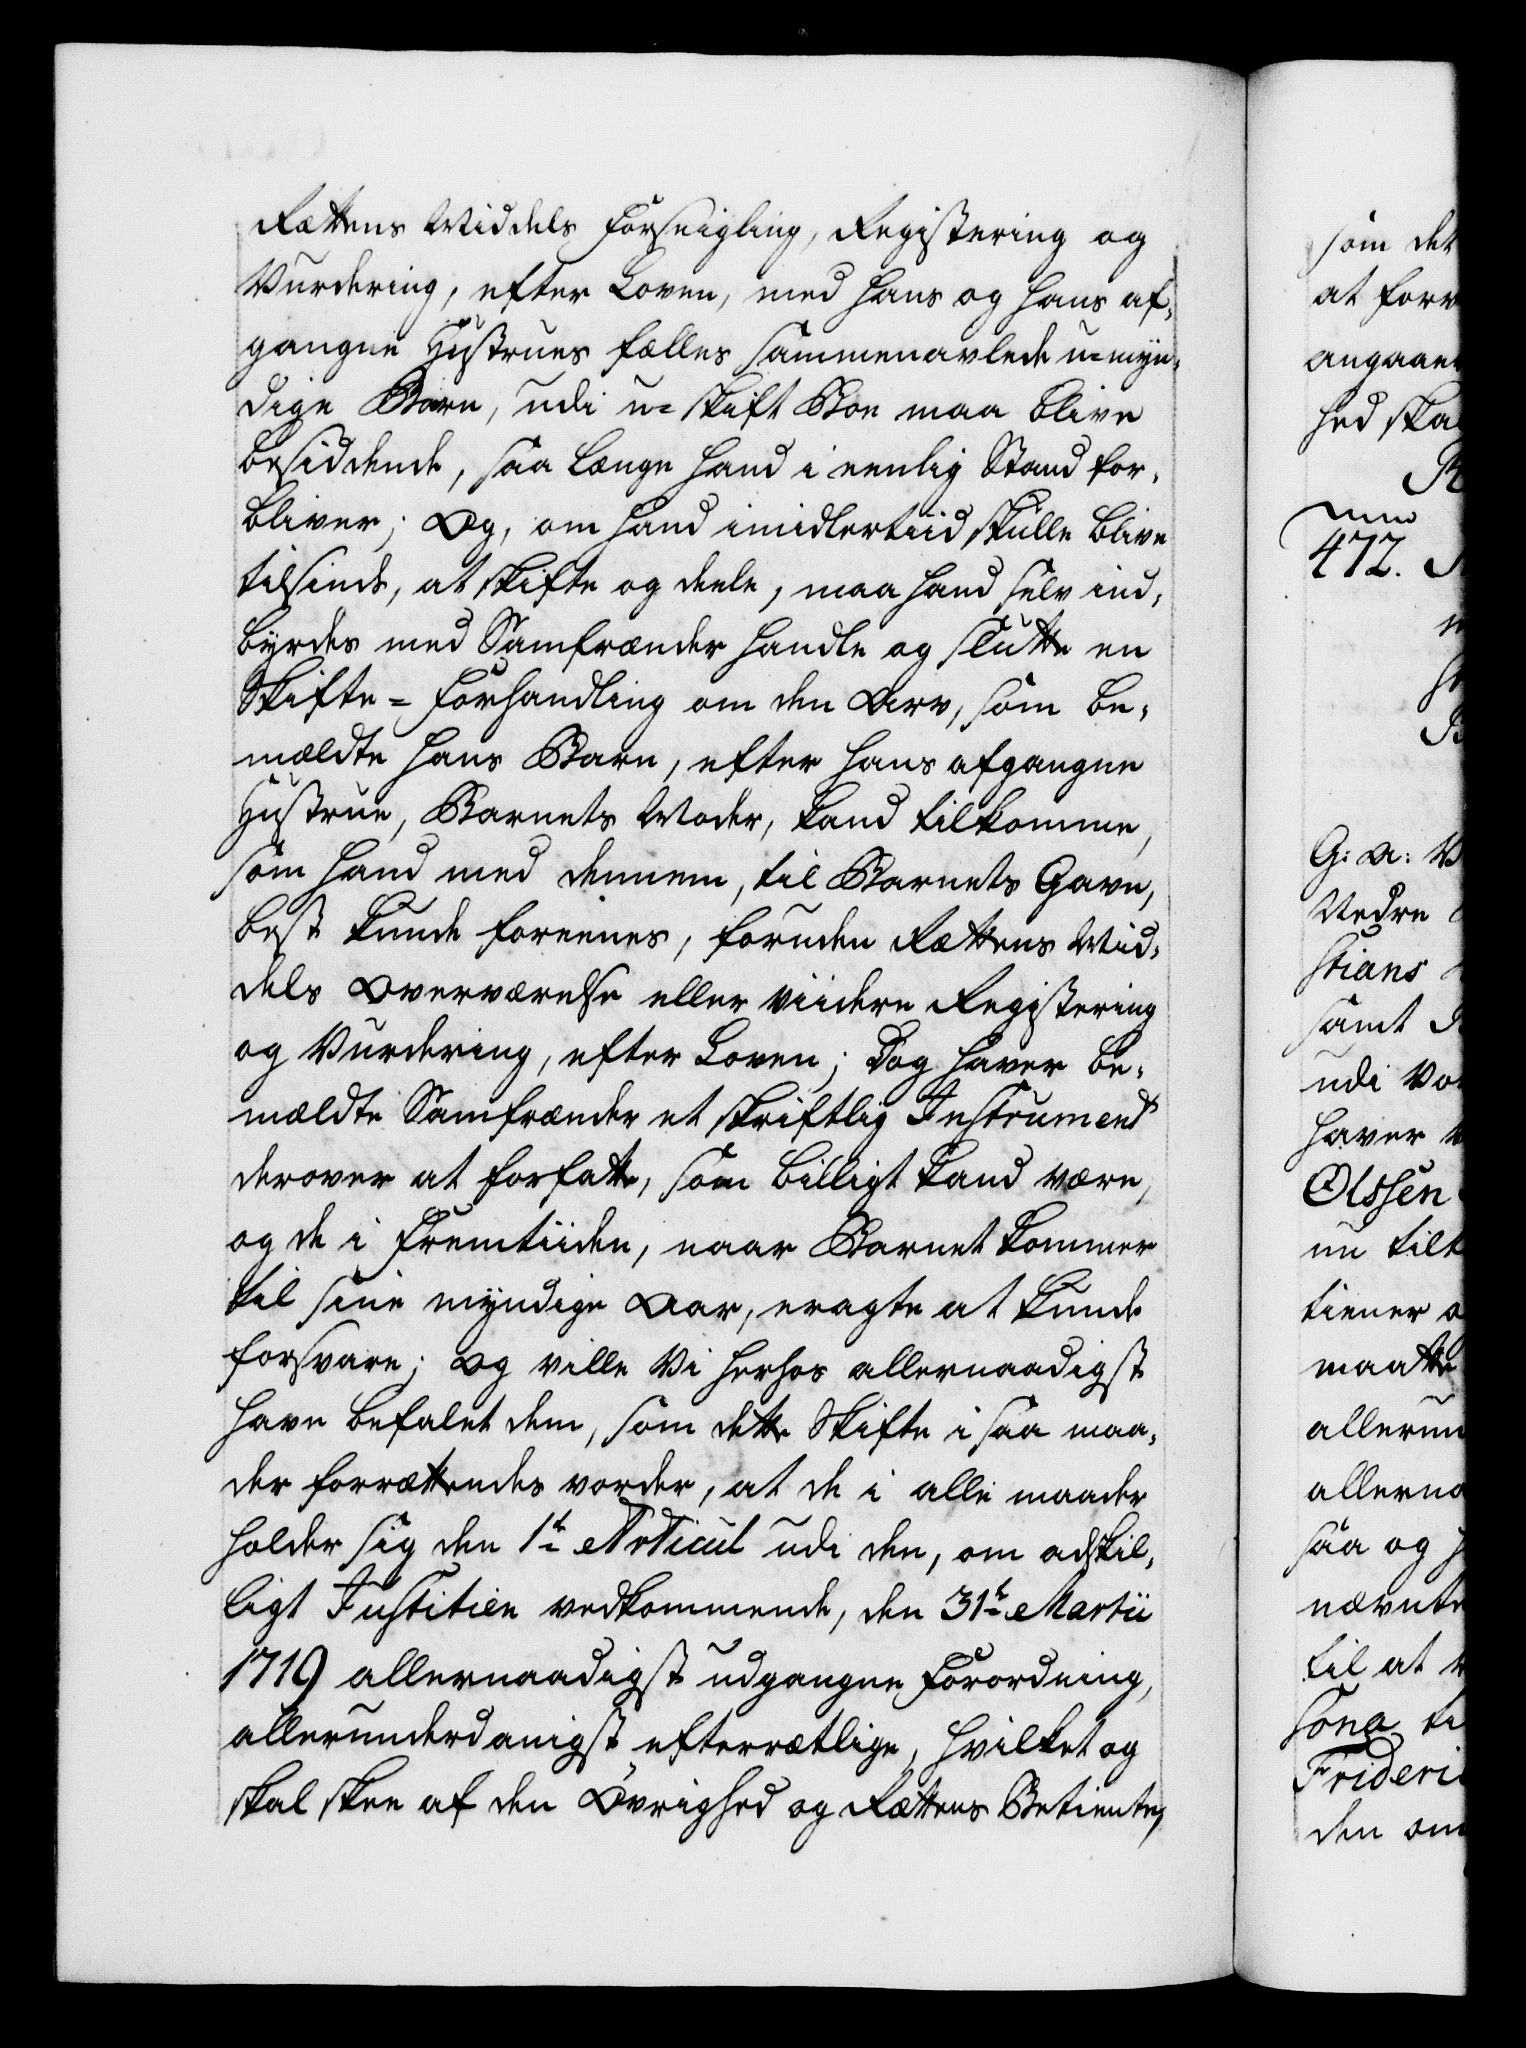 Rættens Middels Forseigling, Registering og
Vurdering, efter Loven, med hans og hans af-
gangne Hustrues fælles sammenavlede u-myn-
dige Barn, udi u-skift Boe maa blive
besiddende, saa længe hand i eenlig Stand for-
bliver; Og, om hand imidlertiid skulle blive
tilsinds, at skifte og deele, maa hand selv ind-
byrdes med Samfrænder handle og slutte en
Skifte-Forhandling om den Arv, som be-
mældte hans Barn, efter hans afgangne
Hustrue, Barnets Moder, kand tilkomme,
som hand med dennem, til Barnets Gavn,
best kunde foreenes, foruden Rættens Mid-
dels Overværelse eller viidere Registering
og Vurdering, efter Loven; Dog haver be-
mældte Samfrænder et skriftlig Instrument
derover at forfatte, som billigt kand være,
og de i Fremtiiden, naar Barnet kommer
til sine myndige Aar, eragte at kunde
forsvare; Og ville Vi herhos allernaadigst
have befalet dem, som dette Skifte i saa maa-
der forrættendes vorder, at de i alle maader
holder sig den 1te Articul udi den, om adskil-
ligt Justitien vedkommende, den 31te Martii
1719 allernaadigst udgangne Forordning,
allerunderdanigst efterrættlige, hvilket og
skal skee af den Øvrighed og Rættens Betiente,
som det
at forr
angaaen
hed ska
472.
G: A: V
Vedre
stians
samt
udi Vor
haver
Olssen
nu tilk
tiener
maatte
allerun
allerna
saa og
nævnte
til at
sona ti
Frideri
den om